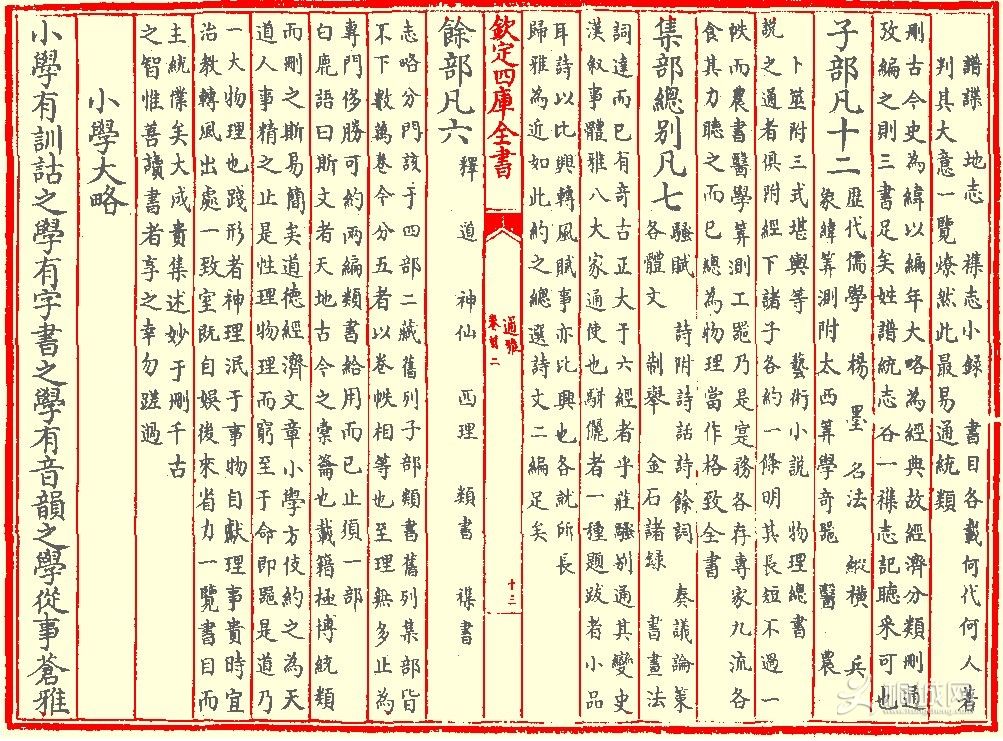 譜諜　地志　襍志小録　書目各載何代何人著
判其大意一覽燎然此最易通統類
刪古今史為緯以編年大略為經典故經濟分類刪通
攷編之則三書足矣姓譜統志各一襍志記聽采可也
子部凡十二
歷代儒學　楊　墨　名法　縱橫　兵
象緯筭測附太西筭學奇噐　醫　農
卜筮附三式堪輿等　藝術小説　物理總書
説之通者俱附經下諸子各約一條明其長短不過一
帙而農書醫學筭測工噐乃是寔務各存專家九流各
食其力聽之而已總為物理當作格致全書
集部總别凡七
騷賦　詩附詩話詩餘詞　奏議論策
各體文　制舉　金石諸録　書畫法
詞達而已有奇古正大于六經者乎莊騷别通其變史
漢叙事體雅八大家通使也駢儷者一種題跋者小品
耳詩以比興轉風賦事亦比興也各就所長
歸雅為近如此約之總選詩文二編足矣
欽定四庫全書
通雅
卷首二
十三
餘部凡六
釋　道　神仙　西理　類書　襍書
志略分門該于四部二藏舊列子部類書舊列集部皆
不下數萬卷今分五者以卷帙相等也至理無多止為
專門侈勝可約兩編類書給用而已止須一部
白鹿語曰斯文者天地古今之橐籥也載籍極博統類
而刪之斯易簡矣道德經濟文章小學方伎約之為天
道人事精之止是性理物理而窮至于命即噐是道乃
一大物理也踐形者神理泯于事物自獻理事貴時宜
治教轉風出處一致室既自娱後來省力一覽書目而
主統僕矣大成貴集述妙于刪千古
之智惟善讀書者享之幸勿蹉過
小學大略
小學有訓詁之學有字書之學有音韻之學從事蒼雅